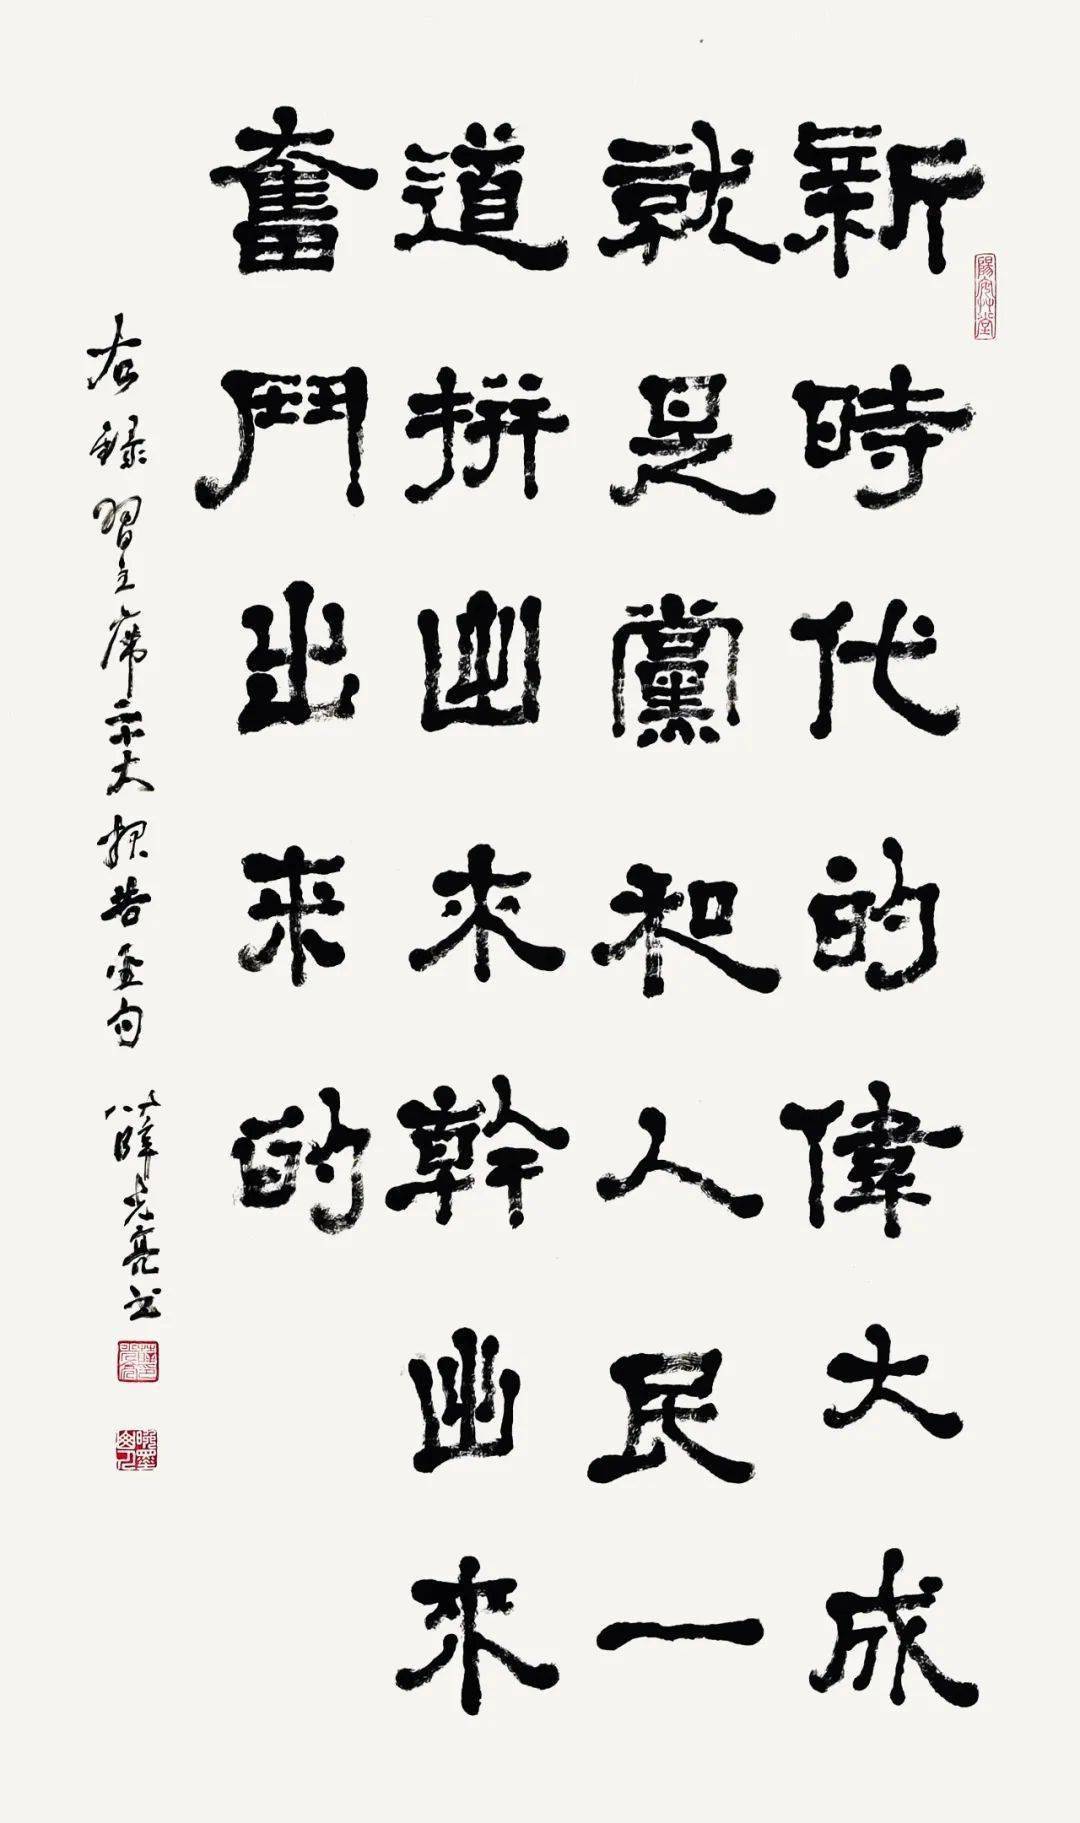 新時代的偉大成
就是黨和人民一
道拼出来幹出來
奮鬥出来的
右錄習主席二十大報告金句 薛光亮书